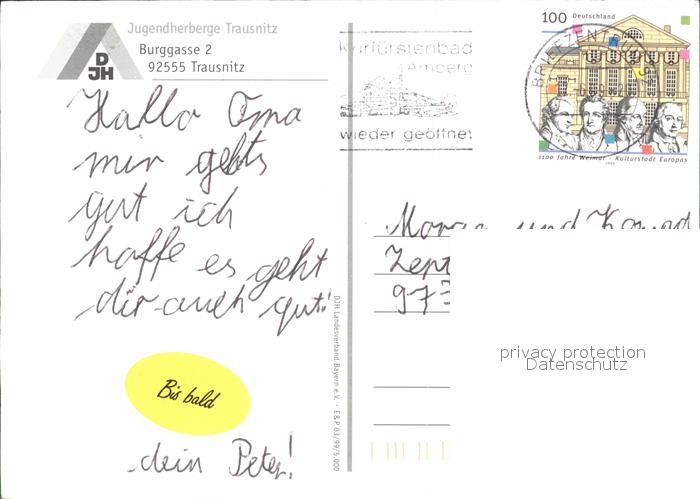 Jugendherberge Trausnitz
Burggasse 2
92555 Trausnitz
DJH
Hallo Oma
mir gehts
gut ich
hoffe es geht
dir auch gut!
Bis bald
dein Peter!
DJH Landesverband Bayern e.V. · E&P 03/99/5.000
Kurfürstenbad
Amberg
wieder geöffnet
100 Deutschland
BRIEFZENTRUM
1100 Jahre Weimar - Kulturstadt Europas
1999
und
Zept
973
privacy protection
Datenschutz